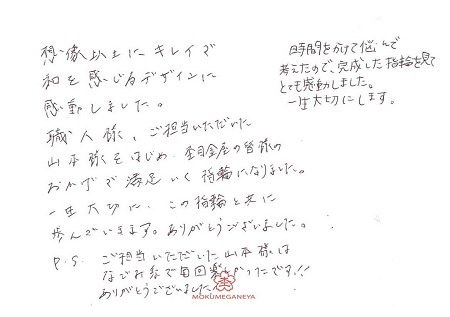 想像以上にキレイで
和を感じるデザインに
感動しました。
職人様、ご担当いただいた
山本様をはじめ、杢目金屋の皆様の
おかげで満足いく指輪になりました。
一生大切に、この指輪と共に
歩んでいきます。ありがとうございました。
P.S. ご担当いただいた山本様は
なごみ系で毎回楽しかったです!!
ありがとうございました
時間をかけて悩んで
考えたので、完成した指輪を見て
とても感動しました。
一生大切にします。
MOKUMEGANEYA